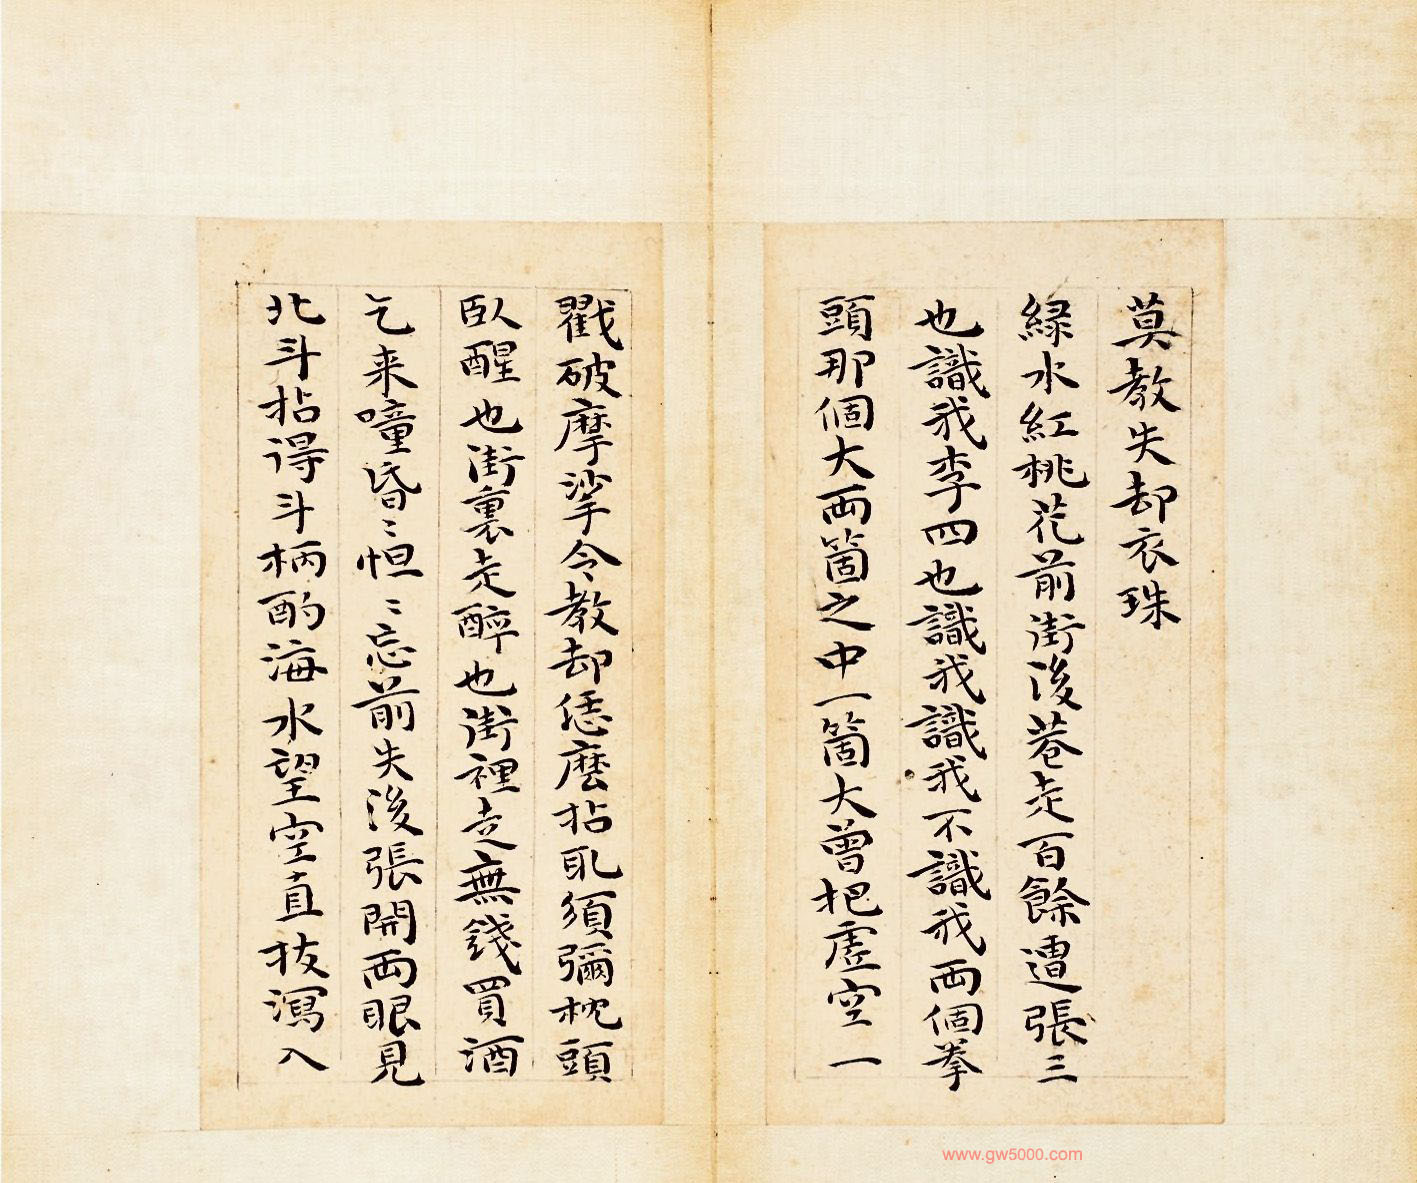 莫教失却衣珠
緑水紅桃花前街後巷走百餘遭張三
也識我李四也識我識我不識我兩個拳
頭那個大兩箇之中一箇大曾把虛空一
戳破摩挲令教却恁麼拈取須彌枕頭
臥醒也街裏走醉也街裡走無錢買酒
乞来噇昏〻怛〻忘前失後張開兩眼見
北斗拈得斗柄酌海水望空直拔瀉入
www.gw5000.com